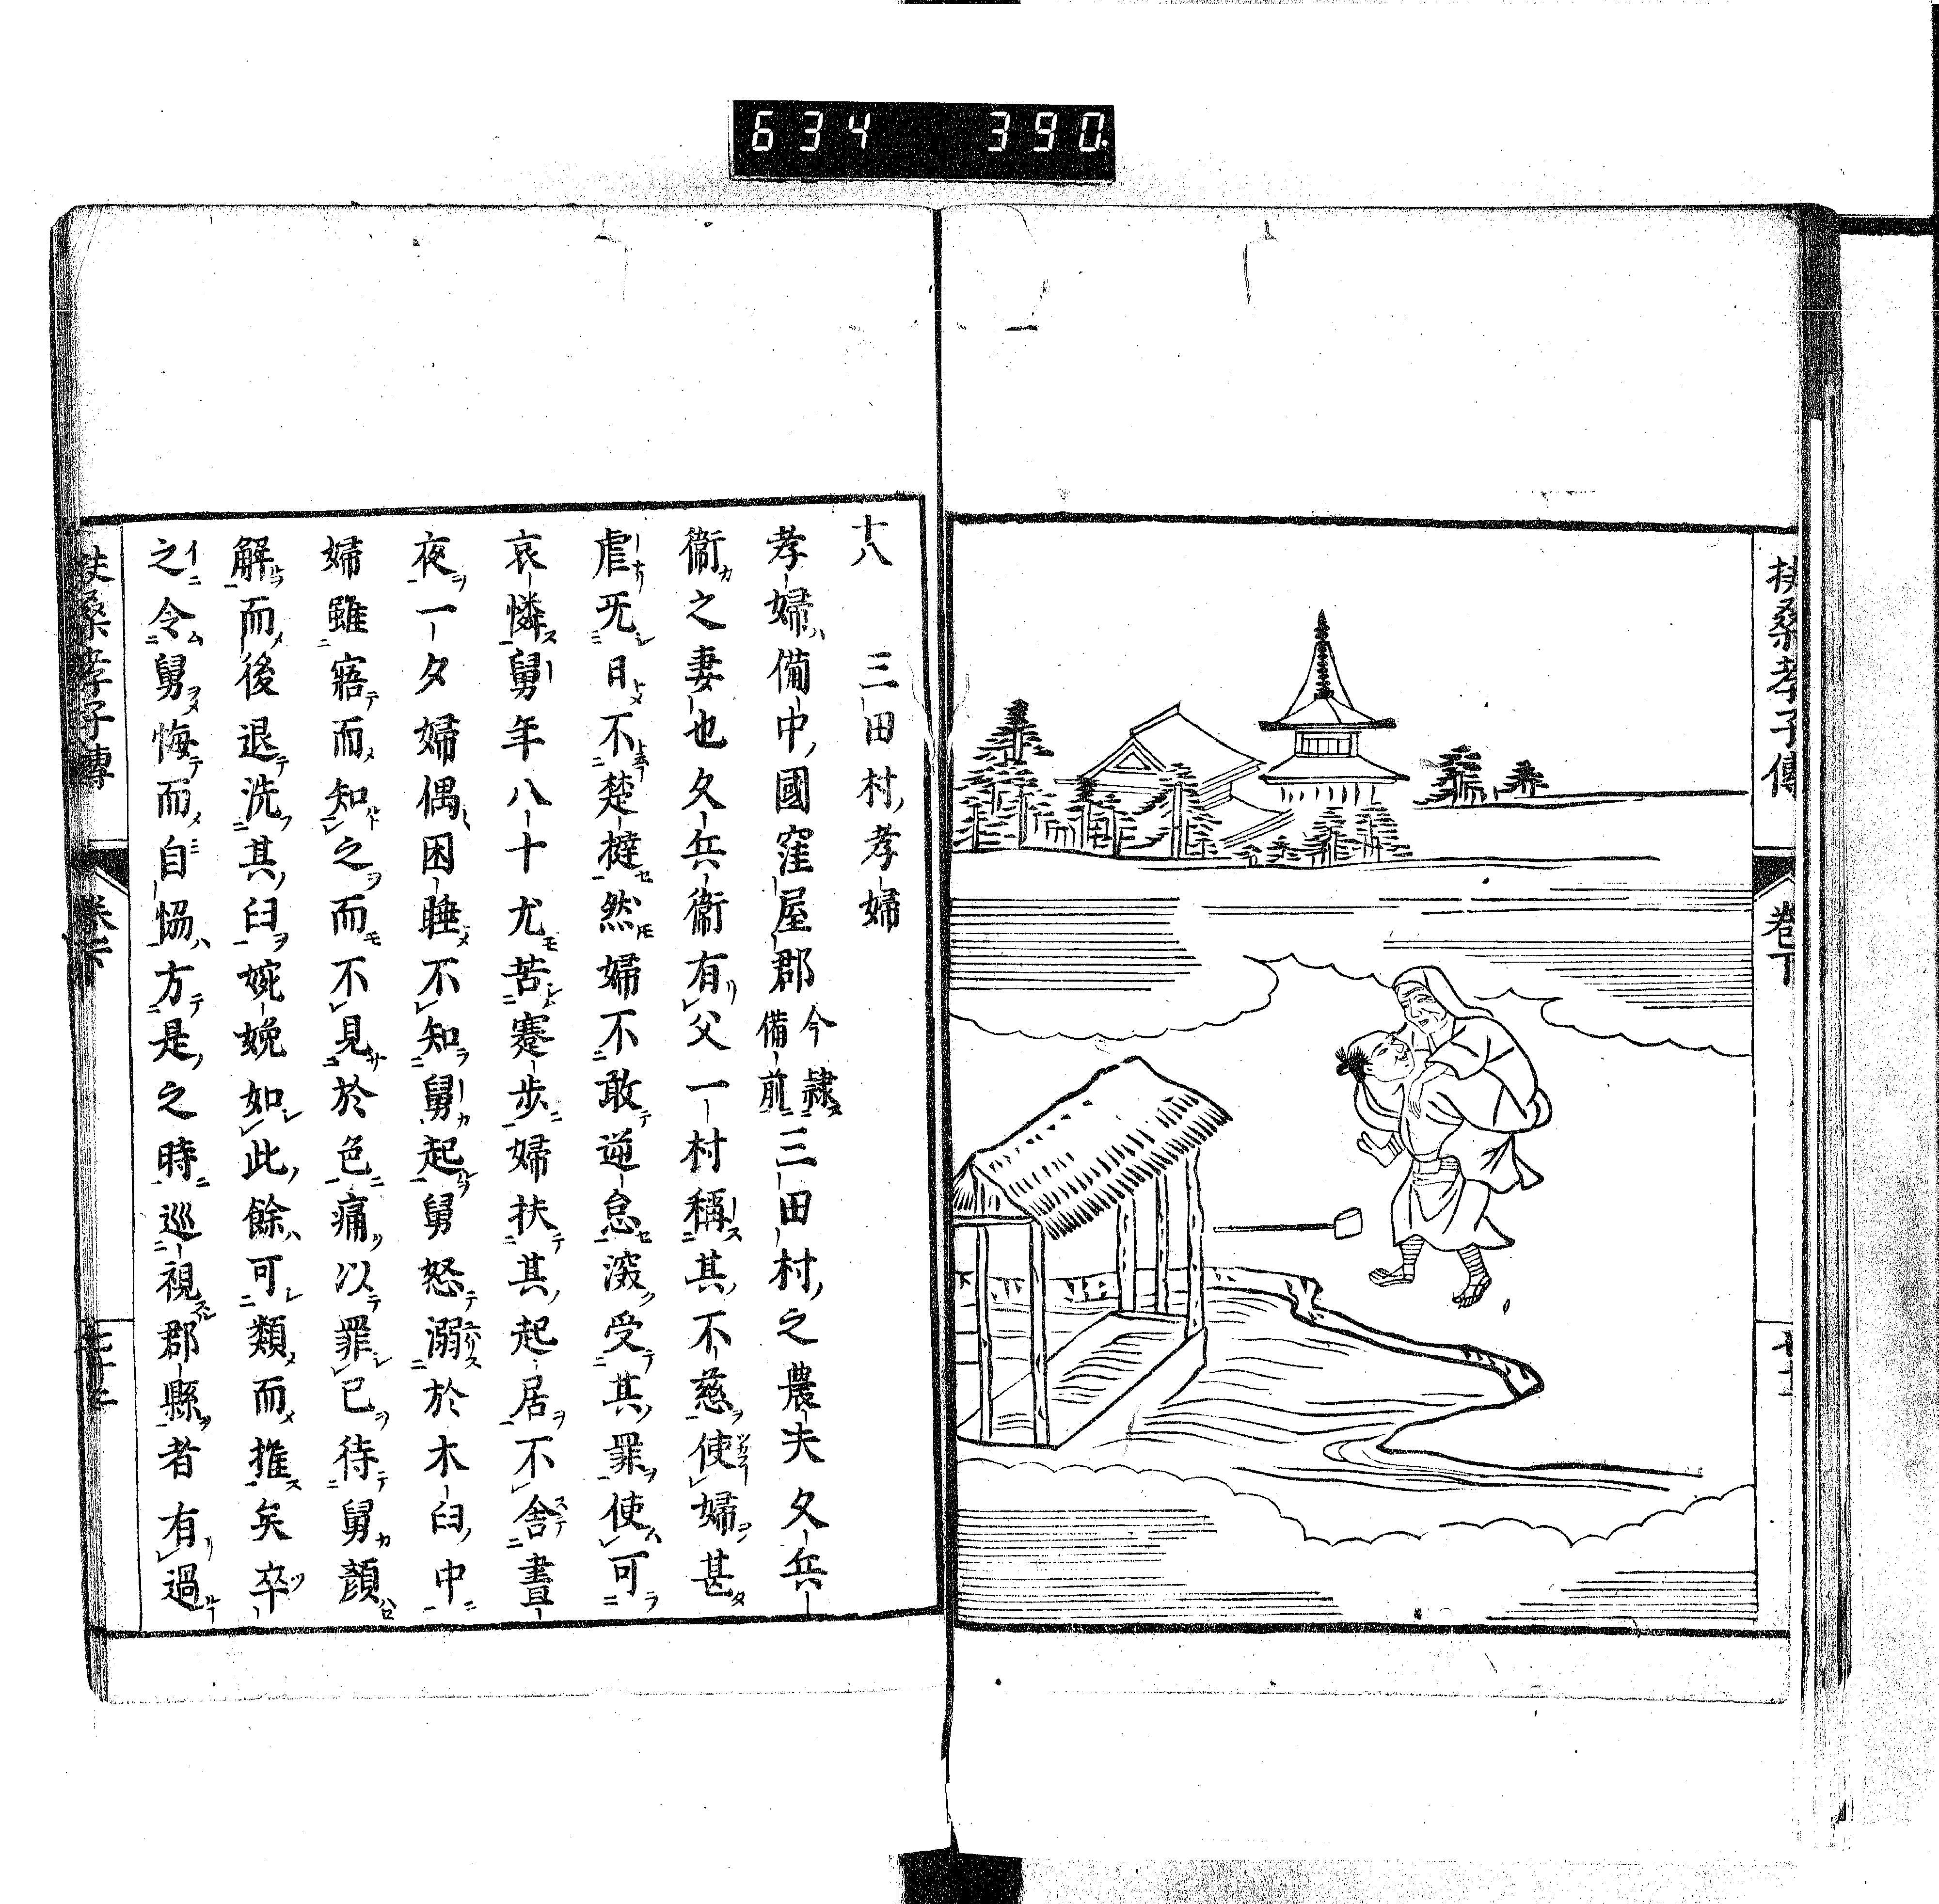 634 390
扶桑孝子傳 巻下
十八 三田村孝婦
孝婦備中國窪屋郡今隷備前三田村之農夫久兵
衞之妻也久兵衞有父一村稱其不慈使婦甚
虐无日不楚撻然婦不敢逆怠深受其罪使可
哀憐舅年八十尤苦蹇步婦扶其起居不舎晝
夜一夕婦偶困睡不知舅起舅怒溺於木臼中
婦雖寤而知之而不見於色痛以罪已待舅顏
解而後退洗其臼婉娩如此餘可類而推矣卒
之令舅悔而自恊方是之時巡視郡縣者有過
扶桑孝子傳 巻下 七十二